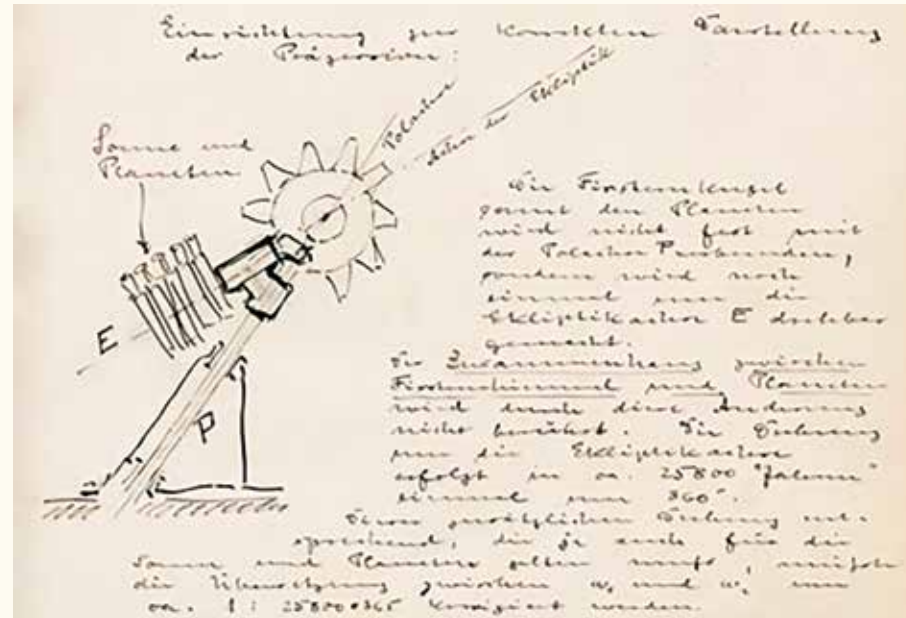 Einrichtung zur korrekten Darstellung
der Präzession:
Polachse
Achse der Ekliptik
Sonne und
Planeten
E
P
Die Fixsternkugel
samt den Planeten
wird nicht fest mit
der Polachse P verbunden,
sondern wird noch
einmal um die
Ekliptikachse E drehbar
gemacht.
Der Zusammenhang zwischen
Fixsternhimmel und Planeten
wird durch diese Änderung
nicht berührt. Die Drehung
um die Ekliptikachse
erfolgt in ca. 25800 "Jahren"
einmal um 360°.
Dieser zusätzlichen Drehung ent-
sprechend, die ja auch für die
Sonne und Planeten gelten muß, müßte
die Übersetzung zwischen und um
ca. 1 : 25800•365 korrigiert werden.